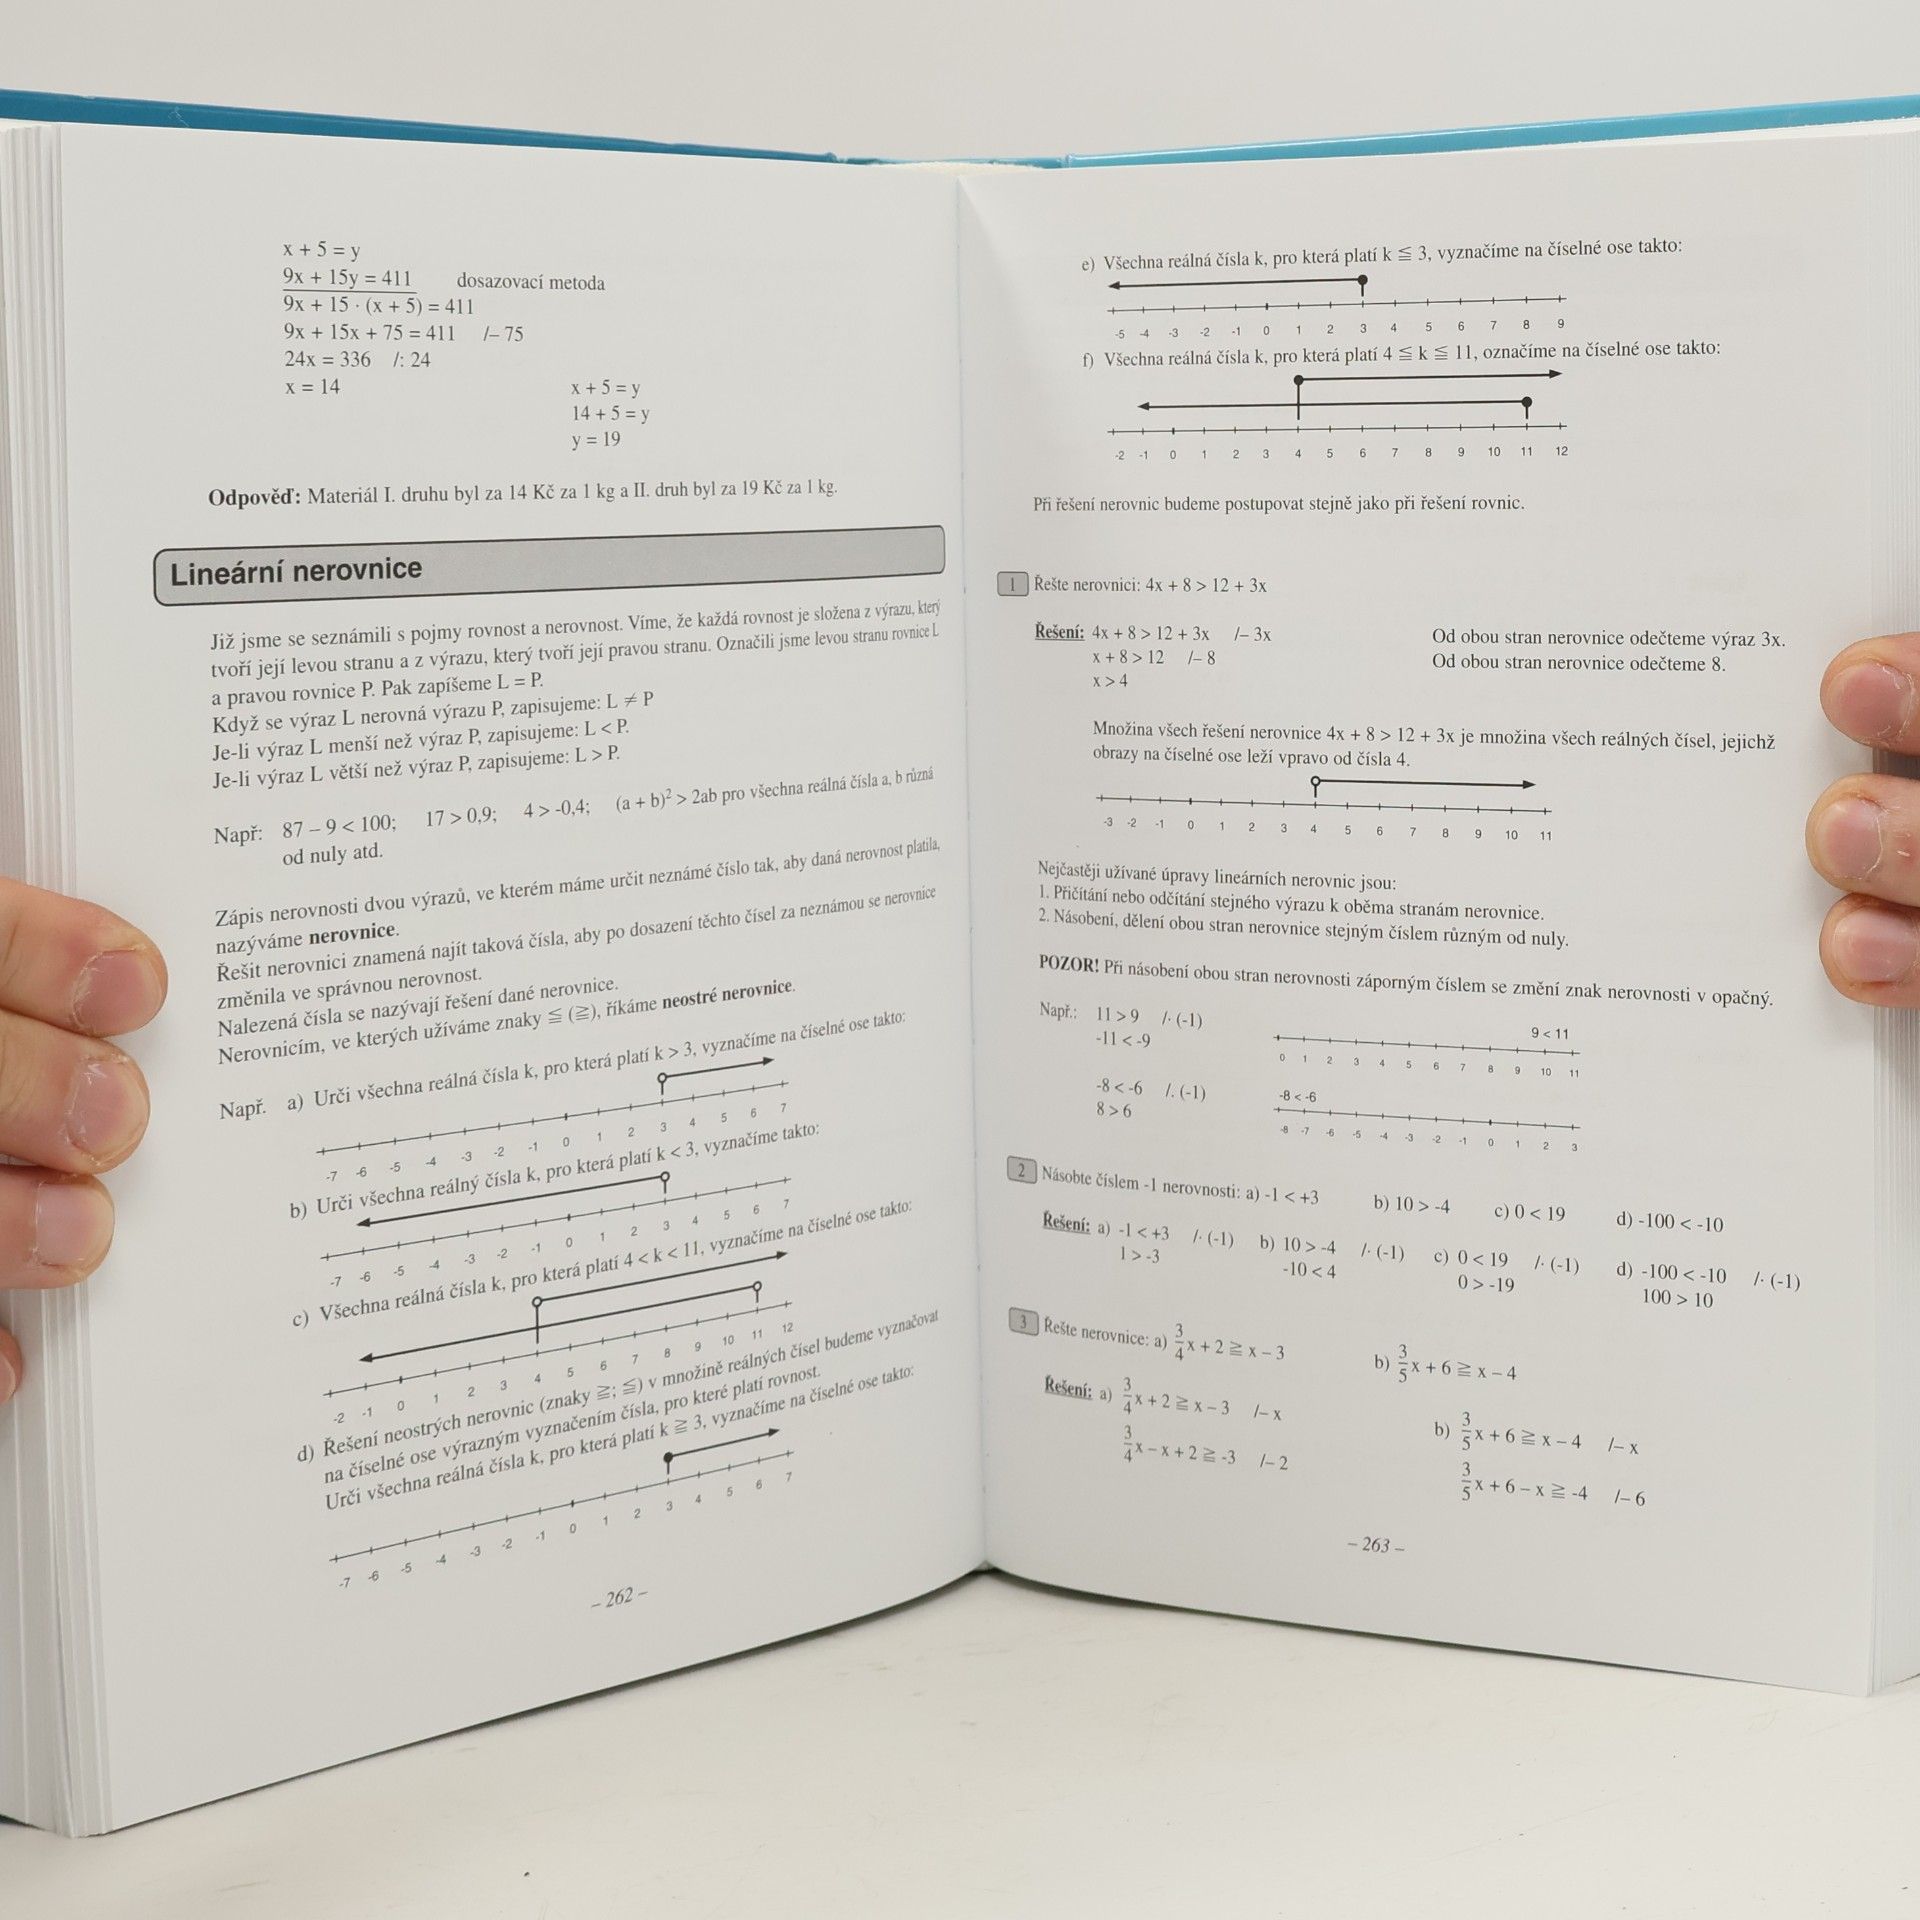 x + 5 = y
9x + 15y = 411 dosazovací metoda
9x + 15 · (x + 5) = 411
9x + 15x + 75 = 411 /– 75
24x = 336 /: 24
x = 14
x + 5 = y
14 + 5 = y
y = 19
Odpověď: Materiál I. druhu byl za 14 Kč za 1 kg a II. druh byl za 19 Kč za 1 kg.
Lineární nerovnice
Již jsme se seznámili s pojmy rovnost a nerovnost. Víme, že každá rovnost je složena z výrazu, který
tvoří její levou stranu a z výrazu, který tvoří její pravou stranu. Označili jsme levou stranu rovnice L
a pravou rovnice P. Pak zapíšeme L = P.
Když se výraz L nerovná výrazu P, zapisujeme: L ≠ P
Je-li výraz L menší než výraz P, zapisujeme: L < P.
Je-li výraz L větší než výraz P, zapisujeme: L > P.
Např: 87 – 9 < 100; 17 > 0,9; 4 > -0,4; (a + b)² > 2ab pro všechna reálná čísla a, b různá
od nuly atd.
Zápis nerovnosti dvou výrazů, ve kterém máme určit neznámé číslo tak, aby daná nerovnost platila,
nazýváme nerovnice.
Řešit nerovnici znamená najít taková čísla, aby po dosazení těchto čísel za neznámou se nerovnice
změnila ve správnou nerovnost.
Nalezená čísla se nazývají řešení dané nerovnice.
Nerovnicím, ve kterých užíváme znaky ≦ (≧), říkáme neostré nerovnice.
Např. a) Urči všechna reálná čísla k, pro která platí k > 3, vyznačíme na číselné ose takto:
-7 -6 -5 -4 -3 -2 -1 0 1 2 3 4 5 6 7
b) Urči všechna reálný čísla k, pro která platí k < 3, vyznačíme takto:
-7 -6 -5 -4 -3 -2 -1 0 1 2 3 4 5 6 7
c) Všechna reálná čísla k, pro která platí 4 < k < 11, vyznačíme na číselné ose takto:
-2 -1 0 1 2 3 4 5 6 7 8 9 10 11 12
d) Řešení neostrých nerovnic (znaky ≧; ≦) v množině reálných čísel budeme vyznačovat
na číselné ose výrazným vyznačením čísla, pro které platí rovnost.
Urči všechna reálná čísla k, pro která platí k ≧ 3, vyznačíme na číselné ose takto:
-7 -6 -5 -4 -3 -2 -1 0 1 2 3 4 5 6 7
– 262 –
e) Všechna reálná čísla k, pro která platí k ≦ 3, vyznačíme na číselné ose takto:
-5 -4 -3 -2 -1 0 1 2 3 4 5 6 7 8 9
f) Všechna reálná čísla k, pro která platí 4 ≦ k ≦ 11, označíme na číselné ose takto:
-2 -1 0 1 2 3 4 5 6 7 8 9 10 11 12
Při řešení nerovnic budeme postupovat stejně jako při řešení rovnic.
1 Řešte nerovnici: 4x + 8 > 12 + 3x
Řešení: 4x + 8 > 12 + 3x /– 3x Od obou stran nerovnice odečteme výraz 3x.
x + 8 > 12 /– 8 Od obou stran nerovnice odečteme 8.
x > 4
Množina všech řešení nerovnice 4x + 8 > 12 + 3x je množina všech reálných čísel, jejichž
obrazy na číselné ose leží vpravo od čísla 4.
-3 -2 -1 0 1 2 3 4 5 6 7 8 9 10 11
Nejčastěji užívané úpravy lineárních nerovnic jsou:
1. Přičítání nebo odčítání stejného výrazu k oběma stranám nerovnice.
2. Násobení, dělení obou stran nerovnice stejným číslem různým od nuly.
POZOR! Při násobení obou stran nerovnosti záporným číslem se změní znak nerovnosti v opačný.
Např.: 11 > 9 /· (-1) 9 < 11
-11 < -9
0 1 2 3 4 5 6 7 8 9 10 11
-8 < -6 /. (-1) -8 < -6
8 > 6
-8 -7 -6 -5 -4 -3 -2 -1 0 1 2 3
2 Násobte číslem -1 nerovnosti: a) -1 < +3 b) 10 > -4 c) 0 < 19 d) -100 < -10
Řešení: a) -1 < +3 /· (-1) b) 10 > -4 /· (-1) c) 0 < 19 /· (-1) d) -100 < -10 /· (-1)
1 > -3 -10 < 4 0 > -19 100 > 10
3 Řešte nerovnice: a) 3/4 x + 2 ≧ x – 3 b) 3/5 x + 6 ≧ x – 4
Řešení: a) 3/4 x + 2 ≧ x – 3 /– x b) 3/5 x + 6 ≧ x – 4 /– x
3/4 x – x + 2 ≧ -3 /– 2 3/5 x + 6 – x ≧ -4 /– 6
– 263 –